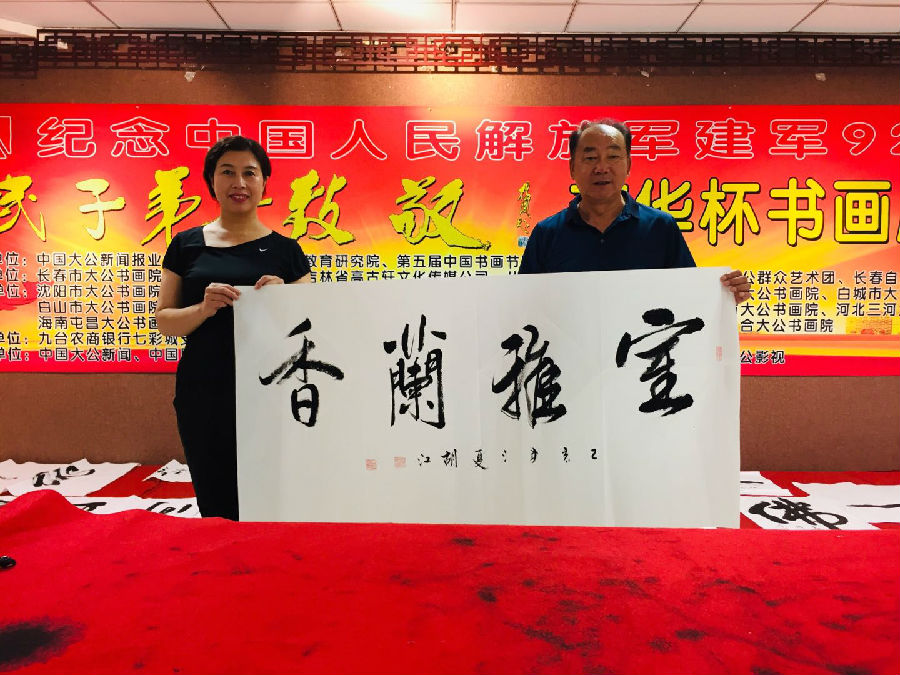 纪念中国人民解放军建军92
民子弟 敬 华杯书画
单位：中国大公新闻报业 教育研究院、第五届中国书画节
单位：长春市大公书画院 吉林省高古轩文化传媒公司 公群众艺术团、长春自
单位：沈阳市大公书画院 大公书画院、白城市大
白山市大公书画院 市大公书画院、河北三河
海南屯昌大公书画 合大公书画院
单位：九台农商银行七彩城支
单位：中国大公新闻、中国 公影视
室雅兰香
己亥 夏胡江
佛